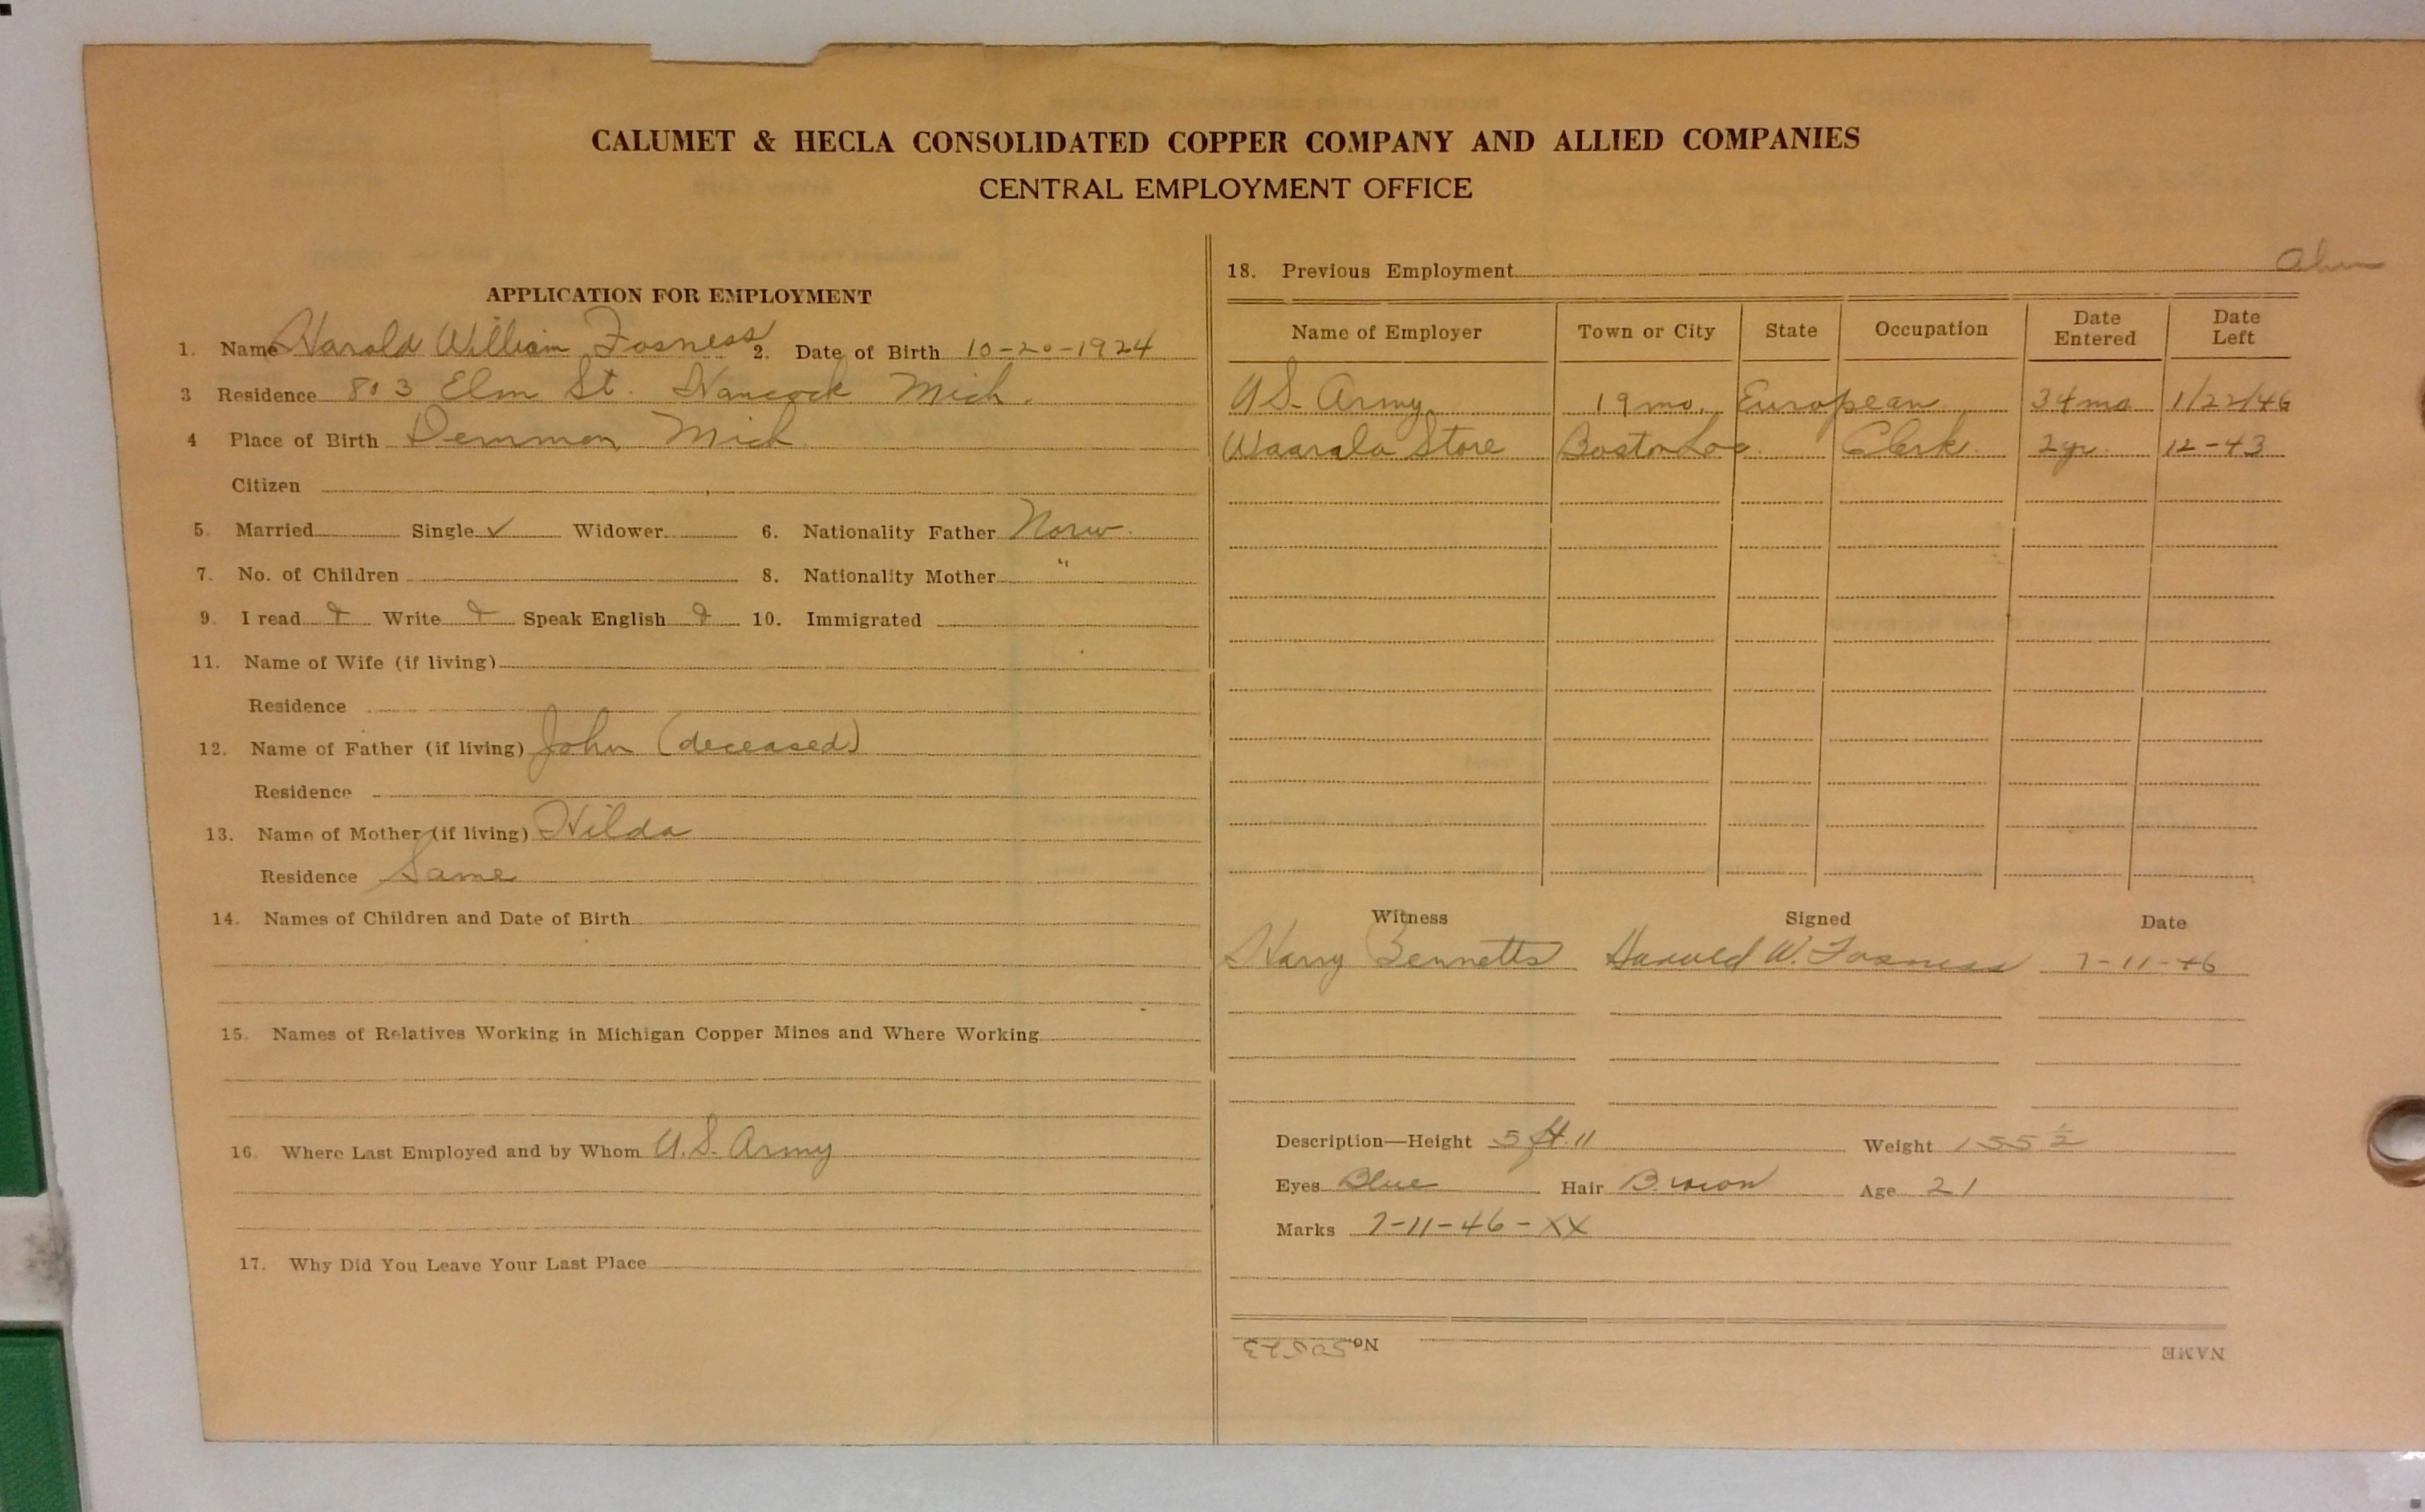 CALUMET & HECLA CONSOLIDATED COPPER COMPANY AND ALLIED COMPANIES
CENTRAL EMPLOYMENT OFFICE
APPLICATION FOR EMPLOYMENT
1. Name Harold William Fosness 2. Date of Birth 10-20-1924
3 Residence 813 Elm St. Hancock Mich.
4 Place of Birth Demmon, Mich
Citizen
5. Married Single ✓ Widower 6. Nationality Father Norw.
7. No. of Children 8. Nationality Mother "
9. I read Write Speak English 10. Immigrated
11. Name of Wife (if living)
Residence
12. Name of Father (if living) John (deceased)
Residence
13. Name of Mother (if living) Hilda
Residence Same
14. Names of Children and Date of Birth
15. Names of Relatives Working in Michigan Copper Mines and Where Working
16. Where Last Employed and by Whom U.S. Army
17. Why Did You Leave Your Last Place
18. Previous Employment
Name of Employer Town or City State Occupation Date Entered Date Left
U.S. Army 19 mo. European 34 mo 1/22/46
Waarala Store Boston Loc. Clerk 2 yr. 12-43
Witness Signed Date
Harry Bennetts Harold W. Fosness 7-11-46
Description—Height 5 ft. 11 Weight 155 ½
Eyes Blue Hair Brown Age 21
Marks 7-11-46-XX
NAME No. 50523